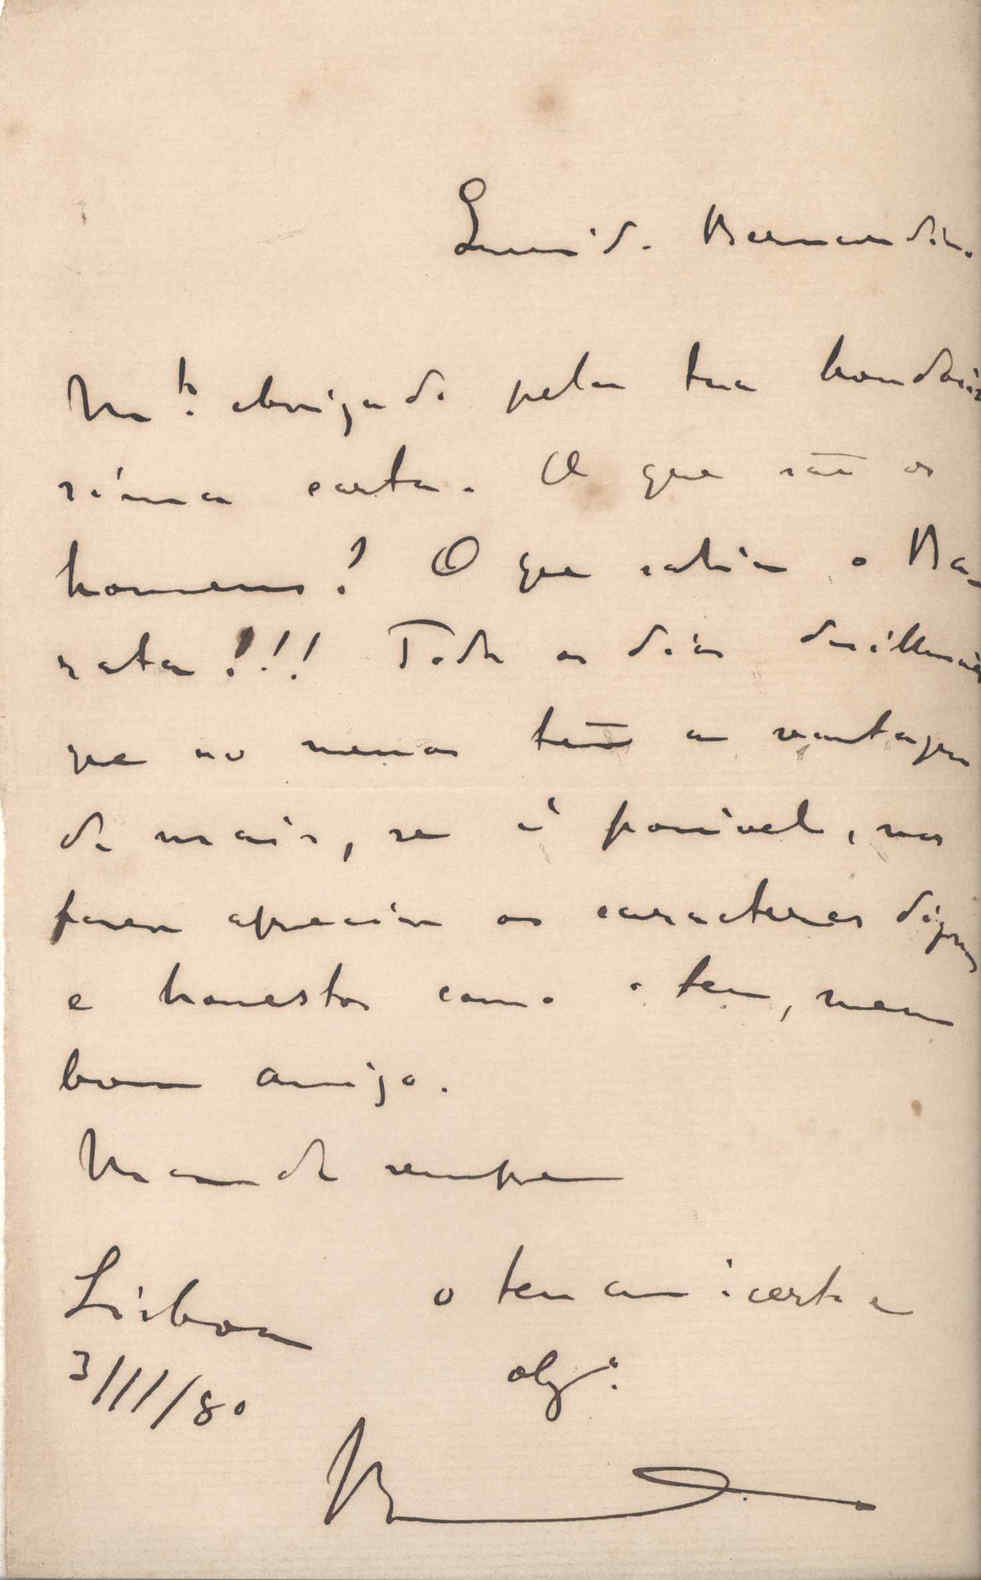 Querido Bernardin.
M.to obrigado pela tua bondosis
sima carta. O que são os
homens! O que sahiu o Ba-
rata!!! Todos os dias desillusões
que ao menos tem a vantagem
de mais, se é possivel, nos
fazer apreciar os caracteres dignos
e honestos como o teu, meu
bom amigo.
Manda sempre
Lisboa o teu am.º certo e
3/III/80 obg.º